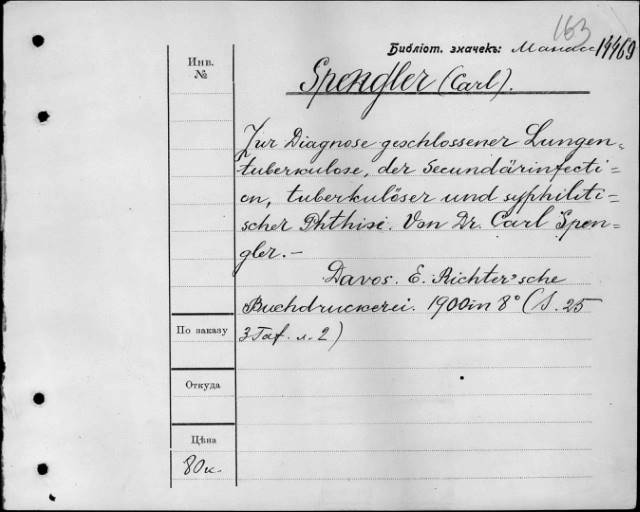 163
Библіот. значекъ: Манасс 14469
Инв.
№
Spengler (Carl).
Zur Diagnose geschlossener Lungen=
tuberkulose, der Secundärinfecti=
on, tuberkulöser und syphiliti=
scher Phthise. Von Dr. Carl Spen=
gler.—
Davos. E. Richter'sche
Buchdruckerei. 1900 in 8° (S. 25
3 Taf. л. 2)
По заказу
Откуда
Цѣна
80к.